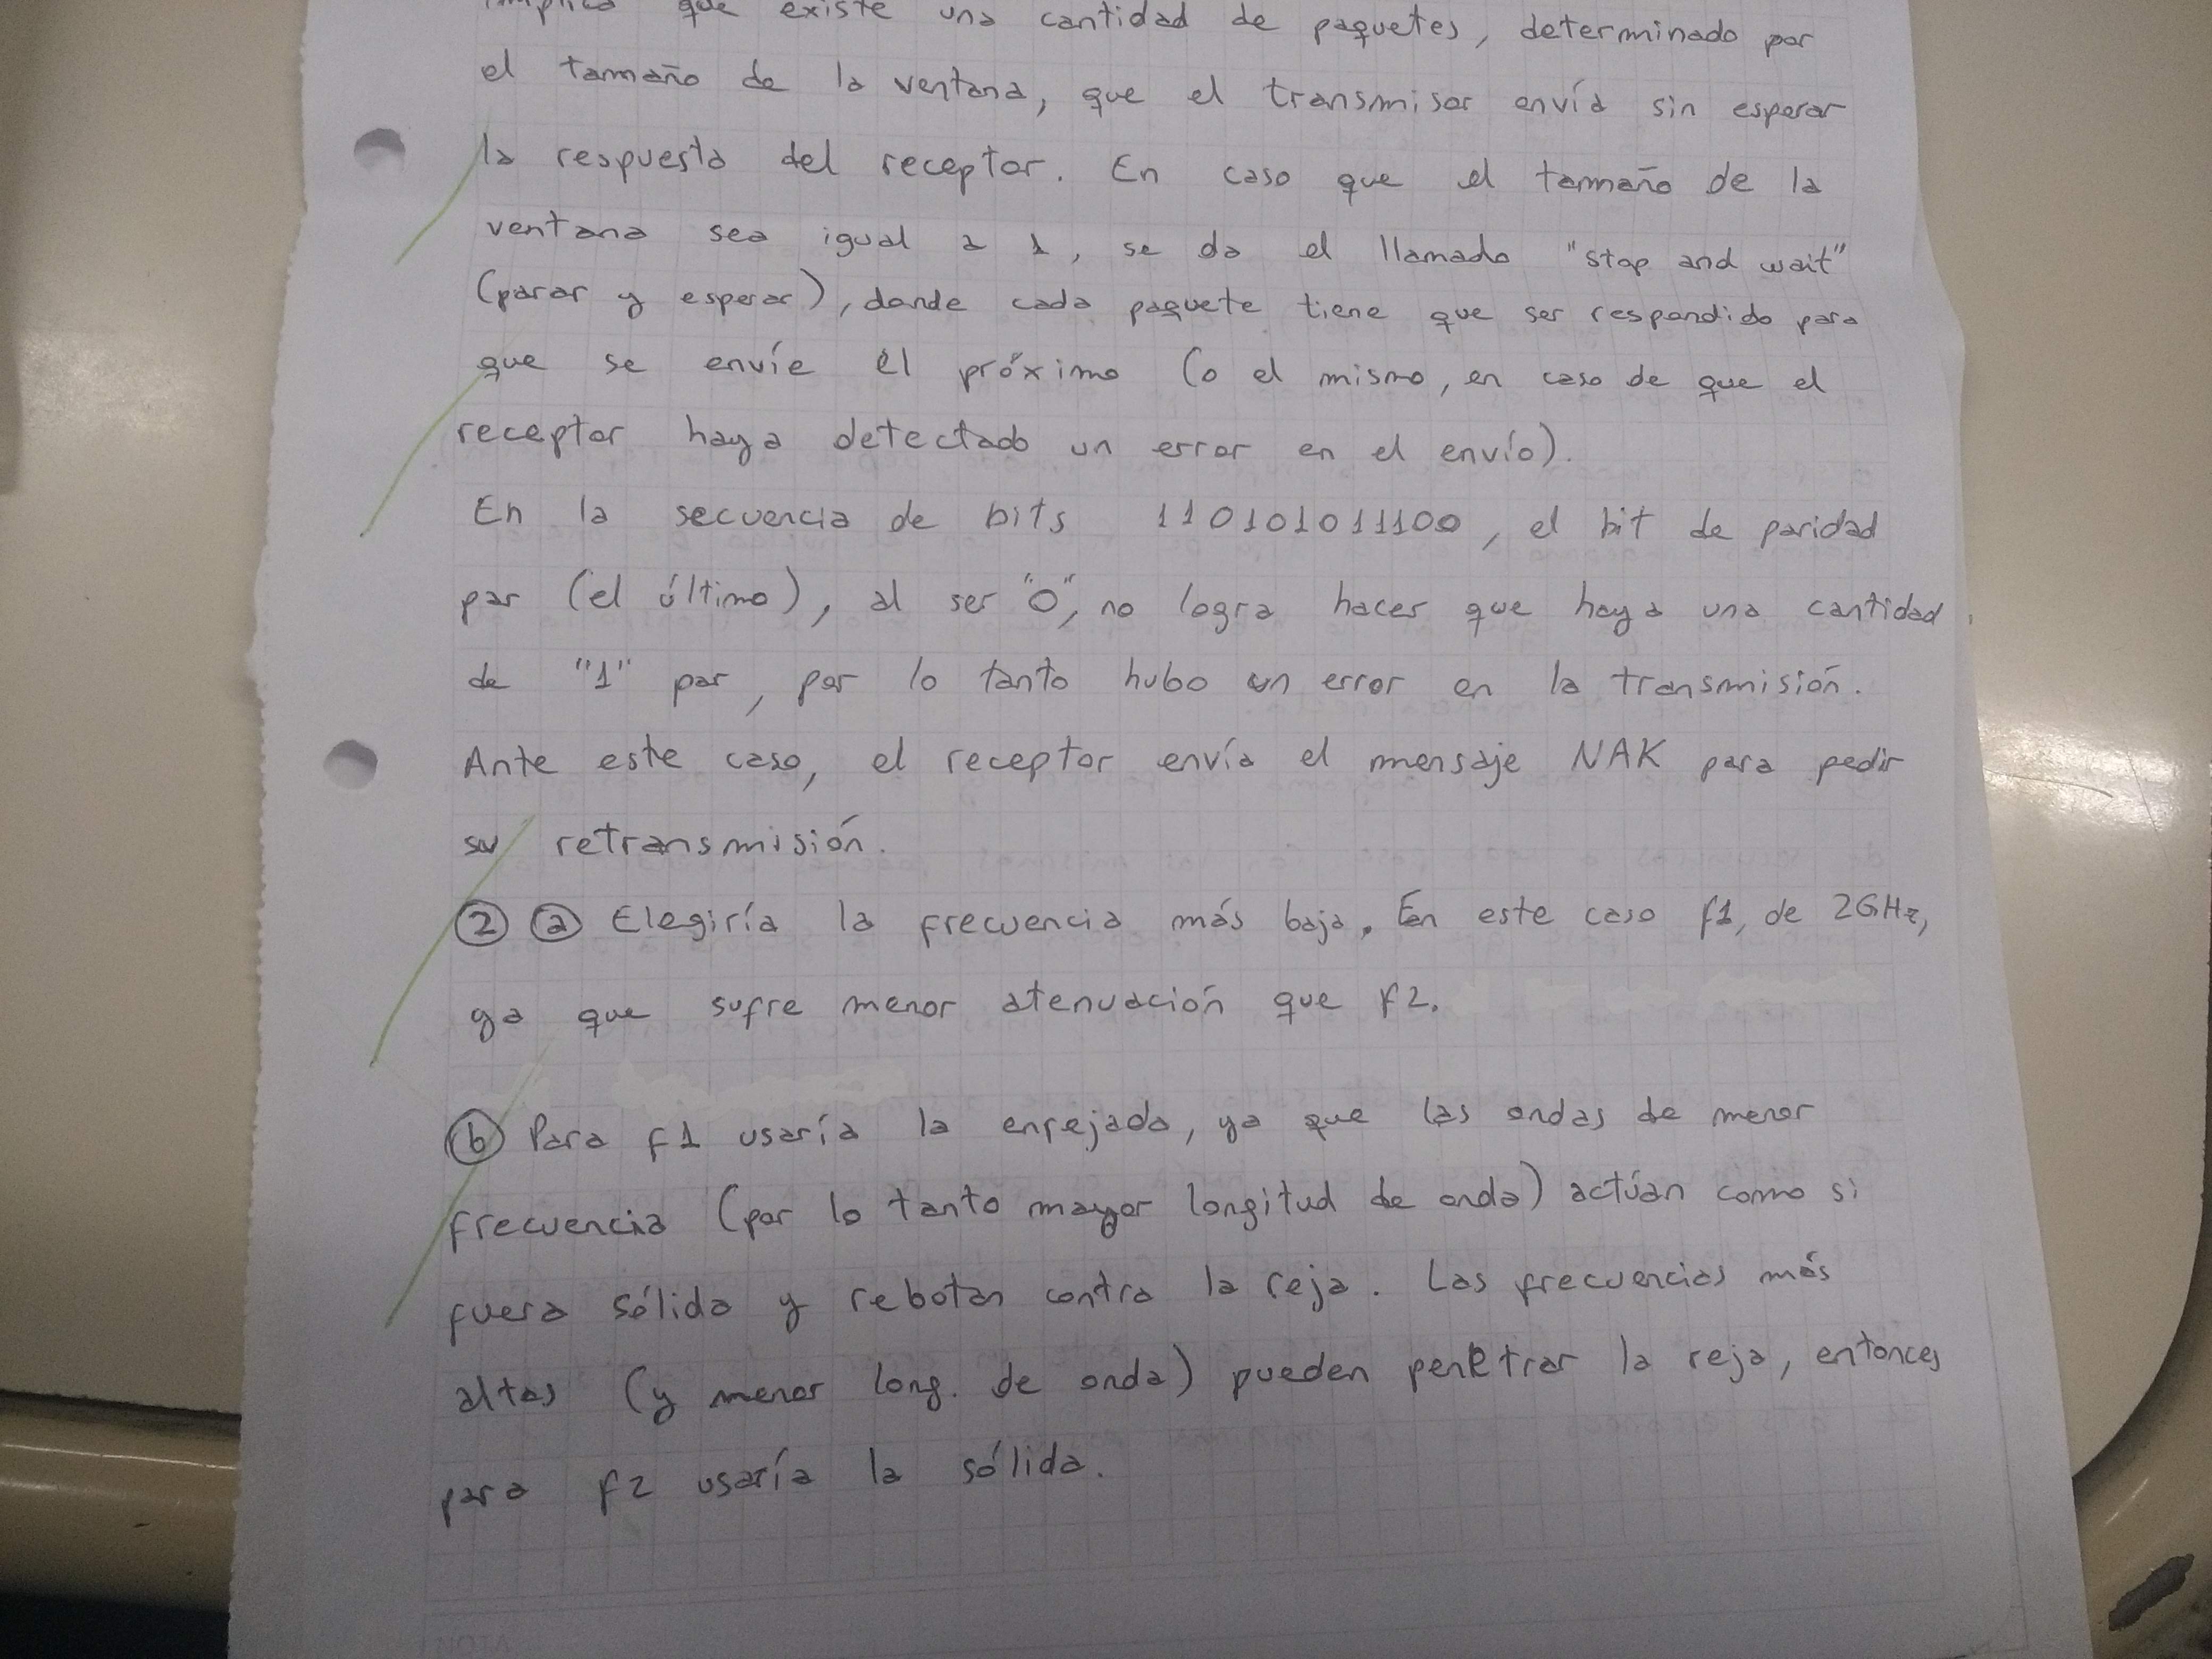 implica que existe una cantidad de paquetes, determinado por
el tamaño de la ventana, que el transmisor envía sin esperar
la respuesta del receptor. En caso que el tamaño de la
ventana sea igual a 1, se da el llamado "stop and wait"
(parar y esperar), donde cada paquete tiene que ser respondido para
que se envíe el próximo (o el mismo, en caso de que el
receptor haya detectado un error en el envío).
En la secuencia de bits 110101011100, el bit de paridad
par (el último), al ser "0", no logra hacer que haya una cantidad
de "1" par, por lo tanto hubo un error en la transmisión.
Ante este caso, el receptor envía el mensaje NAK para pedir
su retransmisión.
2 a Elegiría la frecuencia más baja. En este caso f1, de 2GHz,
ya que sufre menor atenuación que f2.
b Para f1 usaría la enrejada, ya que las ondas de menor
frecuencia (por lo tanto mayor longitud de onda) actúan como si
fuera sólida y rebotan contra la reja. Las frecuencias más
altas (y menor long. de onda) pueden penetrar la reja, entonces
para f2 usaría la sólida.